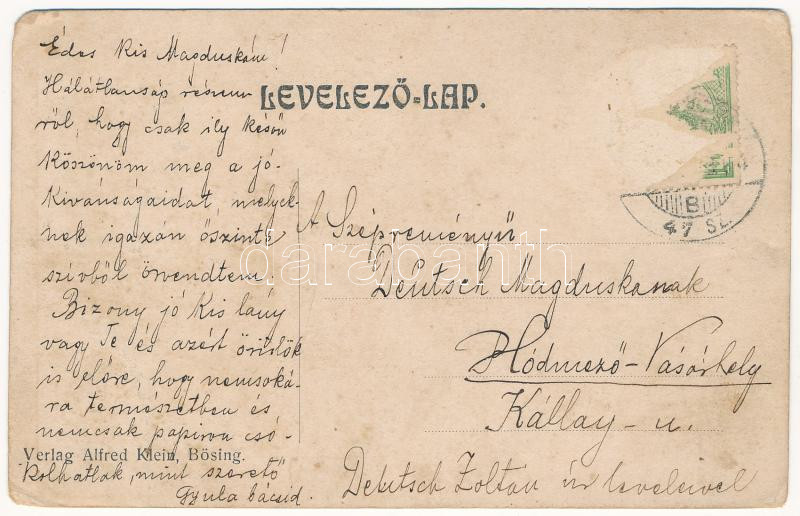 Édes Kis Magduskám!
Hálátlanság részem-
ről, hogy csak ily későn
Köszönöm meg a jó-
Kivánságaidat, melyek-
nek igazán őszinte
szívből örvendtem.
Bizony jó Kis lány
vagy Te és azért örülök
is előre, hogy nemsoká-
ra természetben és
nemcsak papiron csó-
Kolhatlak, mint szerető
Gyula bácsid.
LEVELEZŐ-LAP.
A Szépreményű
Deutsch Magduskanak
Hódmező-Vásárhely
Kállay-u.
Deutsch Zoltán úr leveleivel
Verlag Alfred Klein, Bösing.
B
47 SZ.
darabanth